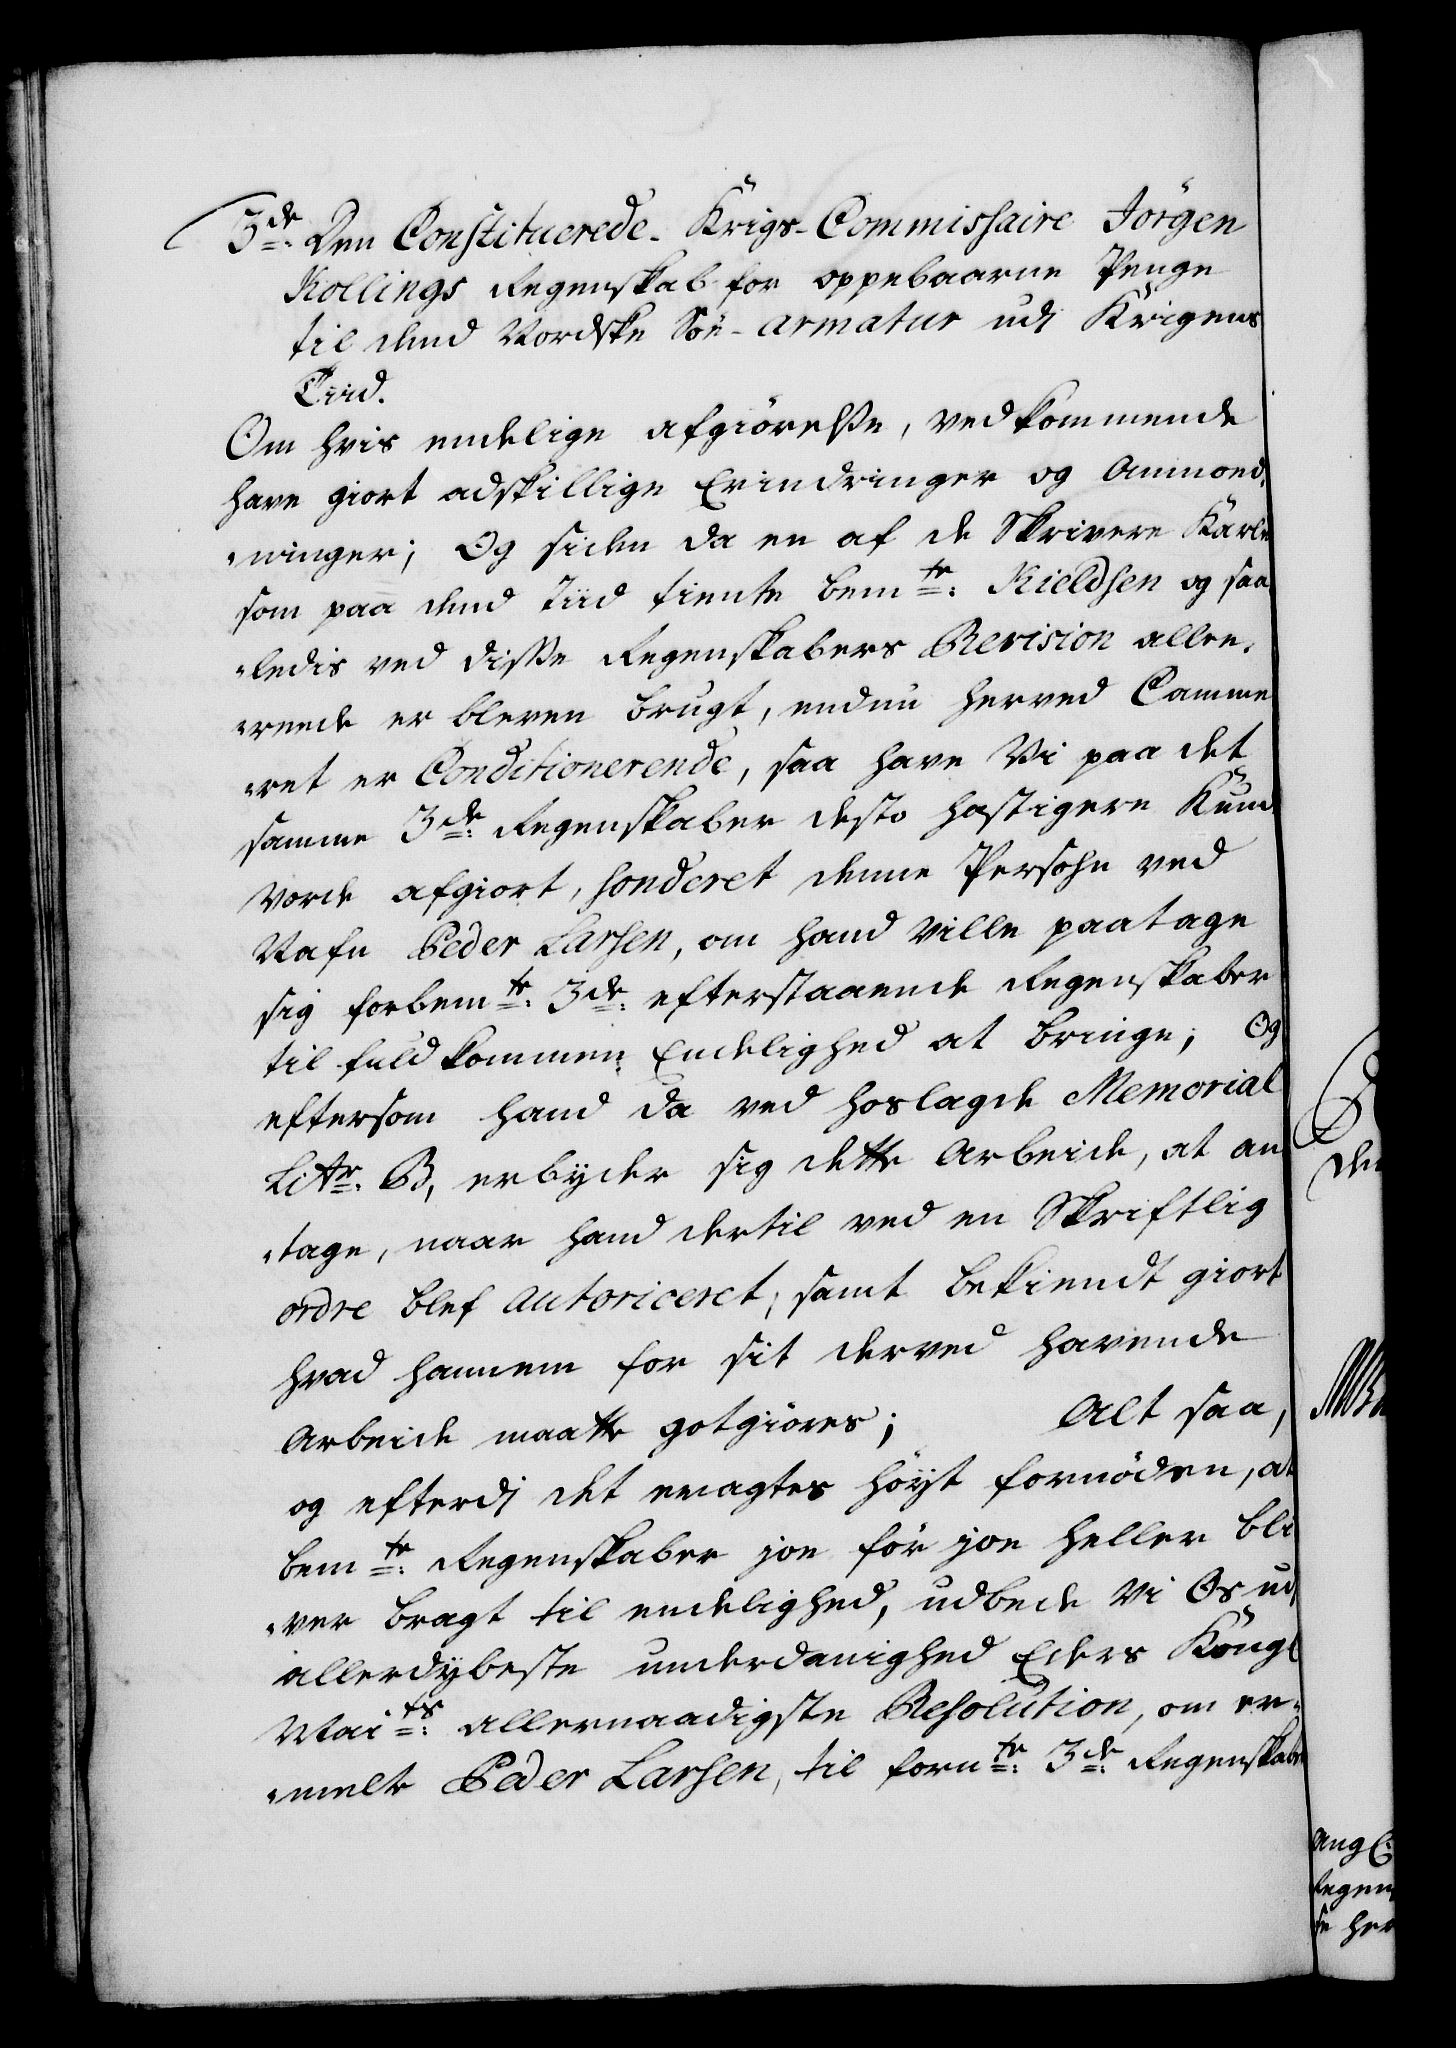 3de. Den Constituerede Krigs-Commissaire Jörgen
Kollings Regenskab for oppebaarne Penge
til dend Nordske Söe-armatur udi Krigens
Tiid.
Om hvis endelige afgiörelße, vedkommende
have giort adskillige Erindringer og Anmoed,
"ninger; Og siden da en af de Skrivere Karle
som paa dend Tiid tiente bemte: Kieldsen og saa
"ledis ved diße Regenskabers Revision alle,
"reede er bleven brugt, endnu herved Camme
"ret er Conditionerende, saa have Vi paa det
samme 3de. Regenskaber desto hastigere Kund
vorde afgiort, sonderet denne Persohn ved
Nafn Peder Larsen, om hand ville paatage
sig forbemte: 3de: efterstaaende Regenskaber
til fuldkommen Endelighed at bringe; Og
eftersom hand da ved hoslagde Memorial
Litr. B, erbyder sig dette Arbeide, at an
"tage, naar hand dertil ved en Skriftlig
ordre blef Autoriceret, samt bekiendt giort
hvad hannem for sit derved havende
Arbeide maatte gotgiöres; Alt saa,
og efterdj det eragtes höyt fornöden, at
bemte: Regenskaber joe för joe heller bli
"ver bragt til endelighed, udbede Vi Os udj
allerdybeste underdanighed Eders Kongl
Maits: allernaadigste Resolution, om er-
"melte Peder Larsen, til fornte: 3de: Regenskabe